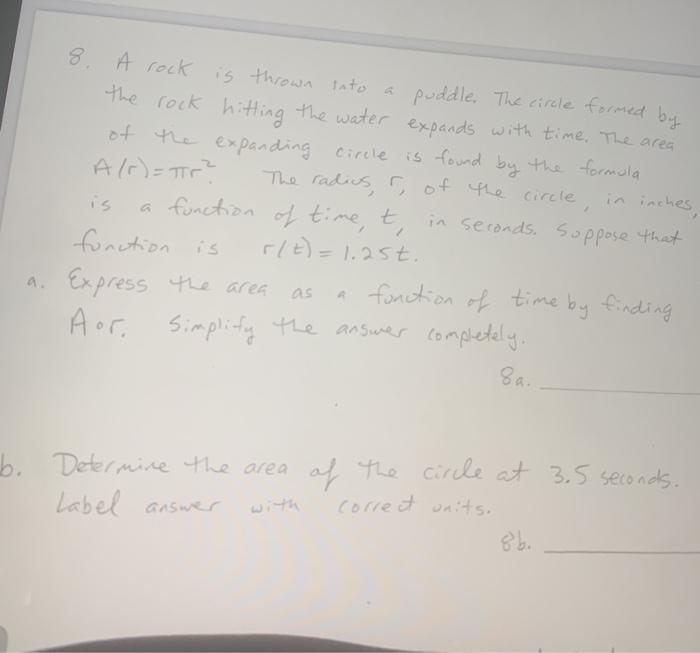 8. A rock is thrown into a puddle. The circle formed by
the rock hitting the water expands with time. The area
of the expanding circle is found by the formula
A(r)=πr². The radius, r, of the circle, in inches,
is a function of time, t, in seconds. Suppose that
function is r(t)=1.25t.
a. Express the area as a function of time by finding
A∘r. Simplify the answer completely.
8a.
b. Determine the area of the circle at 3.5 seconds.
Label answer with correct units.
8b.